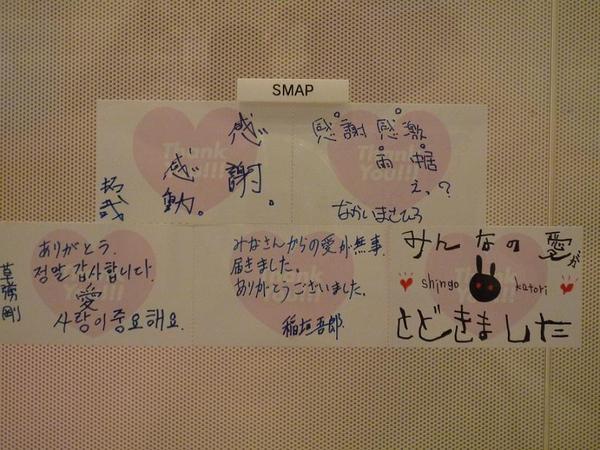 SMAP
感謝。
感動。
拓哉
感謝感激
雨中居
え、?
なかいまさひろ
ありがとう.
정말 감사합니다.
愛
사랑이 중요해요.
草彅剛
みなさんからの愛が無事
届きました。
ありがとうございました。
稲垣吾郎
みんなの愛が
shingo katori
とどきました
Thank
You!!!
Thank
You!!!